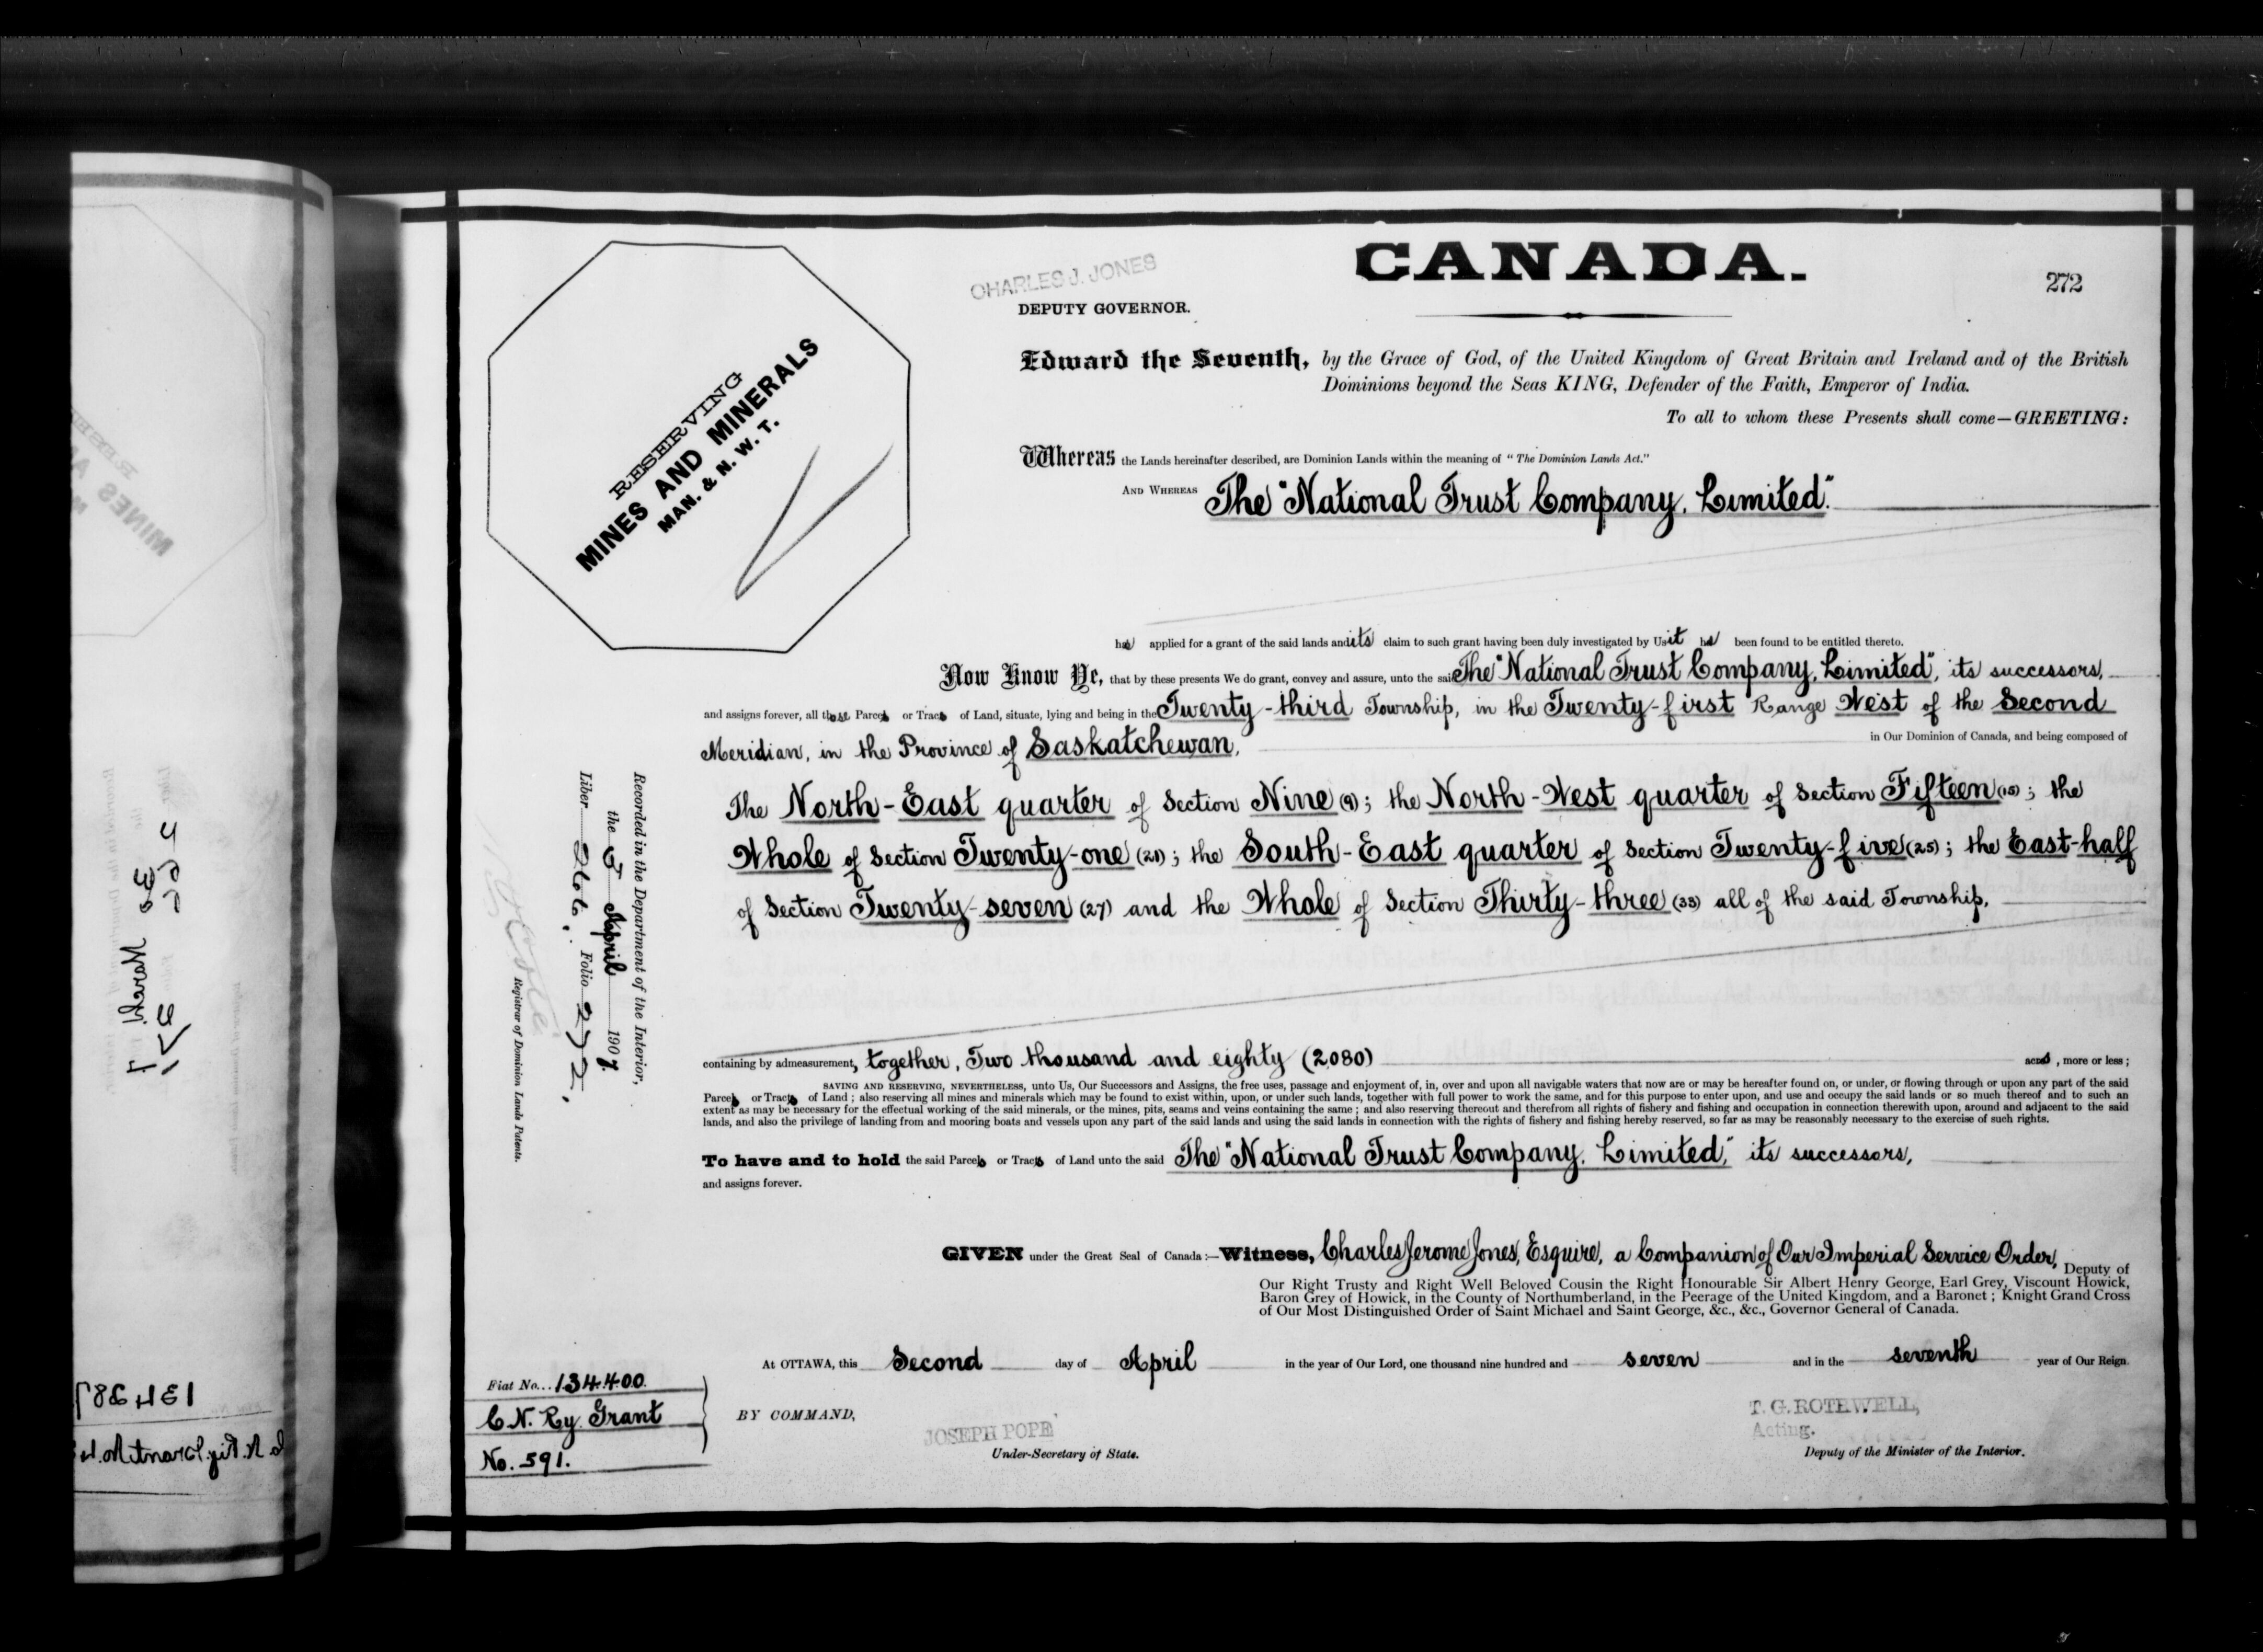 CANADA.
272
CHARLES J. JONES
DEPUTY GOVERNOR.
RESERVING
MINES AND MINERALS
MAN. & N. W. T.
Edward the Seventh, by the Grace of God, of the United Kingdom of Great Britain and Ireland and of the British
Dominions beyond the Seas KING, Defender of the Faith, Emperor of India.
To all to whom these Presents shall come—GREETING:
Whereas the Lands hereinafter described, are Dominion Lands within the meaning of "The Dominion Lands Act."
AND WHEREAS The "National Trust Company, Limited".
has applied for a grant of the said lands and its claim to such grant having been duly investigated by Us it has been found to be entitled thereto.
Now Know Ye, that by these presents We do grant, convey and assure, unto the said The "National Trust Company, Limited", its successors,
and assigns forever, all those Parcels or Tracts of Land, situate, lying and being in the Twenty-third Township, in the Twenty-first Range West of the Second
Meridian, in the Province of Saskatchewan, in Our Dominion of Canada, and being composed of
The North-East quarter of Section Nine (9); the North-West quarter of Section Fifteen (15); the
Whole of Section Twenty-one (21); the South-East quarter of Section Twenty-five (25); the East-half
of Section Twenty-seven (27) and the Whole of Section Thirty-three (33) all of the said Township,
containing by admeasurement, together, Two thousand and eighty (2080) acres, more or less;
SAVING AND RESERVING, NEVERTHELESS, unto Us, Our Successors and Assigns, the free uses, passage and enjoyment of, in, over and upon all navigable waters that now are or may be hereafter found on, or under, or flowing through or upon any part of the said
Parcels or Tracts of Land; also reserving all mines and minerals which may be found to exist within, upon, or under such lands, together with full power to work the same, and for this purpose to enter upon, and use and occupy the said lands or so much thereof and to such an
extent as may be necessary for the effectual working of the said minerals, or the mines, pits, seams and veins containing the same; and also reserving thereout and therefrom all rights of fishery and fishing and occupation in connection therewith upon, around and adjacent to the said
lands, and also the privilege of landing from and mooring boats and vessels upon any part of the said lands and using the said lands in connection with the rights of fishery and fishing hereby reserved, so far as may be reasonably necessary to the exercise of such rights.
To have and to hold the said Parcels or Tracts of Land unto the said The "National Trust Company, Limited," its successors,
and assigns forever.
GIVEN under the Great Seal of Canada:—Witness, Charles Jerome Jones, Esquire, a Companion of Our Imperial Service Order, Deputy of
Our Right Trusty and Right Well Beloved Cousin the Right Honourable Sir Albert Henry George, Earl Grey, Viscount Howick,
Baron Grey of Howick, in the County of Northumberland, in the Peerage of the United Kingdom, and a Baronet; Knight Grand Cross
of Our Most Distinguished Order of Saint Michael and Saint George, &c., &c., Governor General of Canada.
At OTTAWA, this Second day of April in the year of Our Lord, one thousand nine hundred and seven and in the seventh year of Our Reign.
BY COMMAND,
JOSEPH POPE
Under-Secretary of State.
T. G. ROTHWELL,
Acting.
Deputy of the Minister of the Interior.
Recorded in the Department of the Interior,
the 5 April 1907.
Liber 266. Folio 272,
Registrar of Dominion Lands Patents.
Fiat No. 134400.
C. N. Ry. Grant
No. 591.